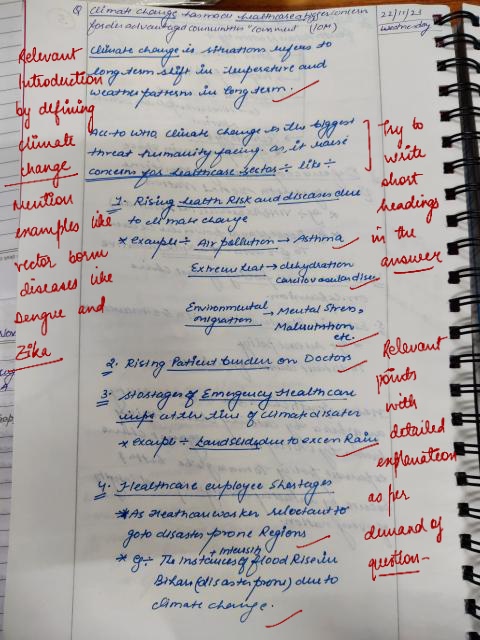 Q Climate Change has made healthcare a bigger concern
for disadvantaged communities "comment (10M)
22/11/23
Wednesday
Climate change is situation refers to
long term shift in temperature and
weather patterns in long term.
Acc to WHO, climate change is the biggest
threat humanity facing. as, it raise
concerns for healthcare sector ÷ like ÷
1. Rising health Risk and diseases due
to climate change
* example ÷ Air pollution → Asthma
Extreme heat → dehydration
cardiovascular
Environmental → Mental Stress
migration Malnutrition
etc.
2. Rising Patient burden on Doctors
3. shortages of Emergency Healthcare
at the time of climate disaster
* example ÷ Landslide due to excess Rain
4. Healthcare employee Shortages
* As Heathcare worker reluctant to
go to disaster prone Regions
* eg ÷ The instances of flood Rise in
+ intensity
Bihar (disaster prone) due to
climate change.
Relevant
Introduction
by defining
climate
change
Mention
examples like
vector born
diseases like
Dengue and
Zika
Try to
write
short
headings
in the
answer
Relevant
points
with
detailed
explanation
as per
demand of
question